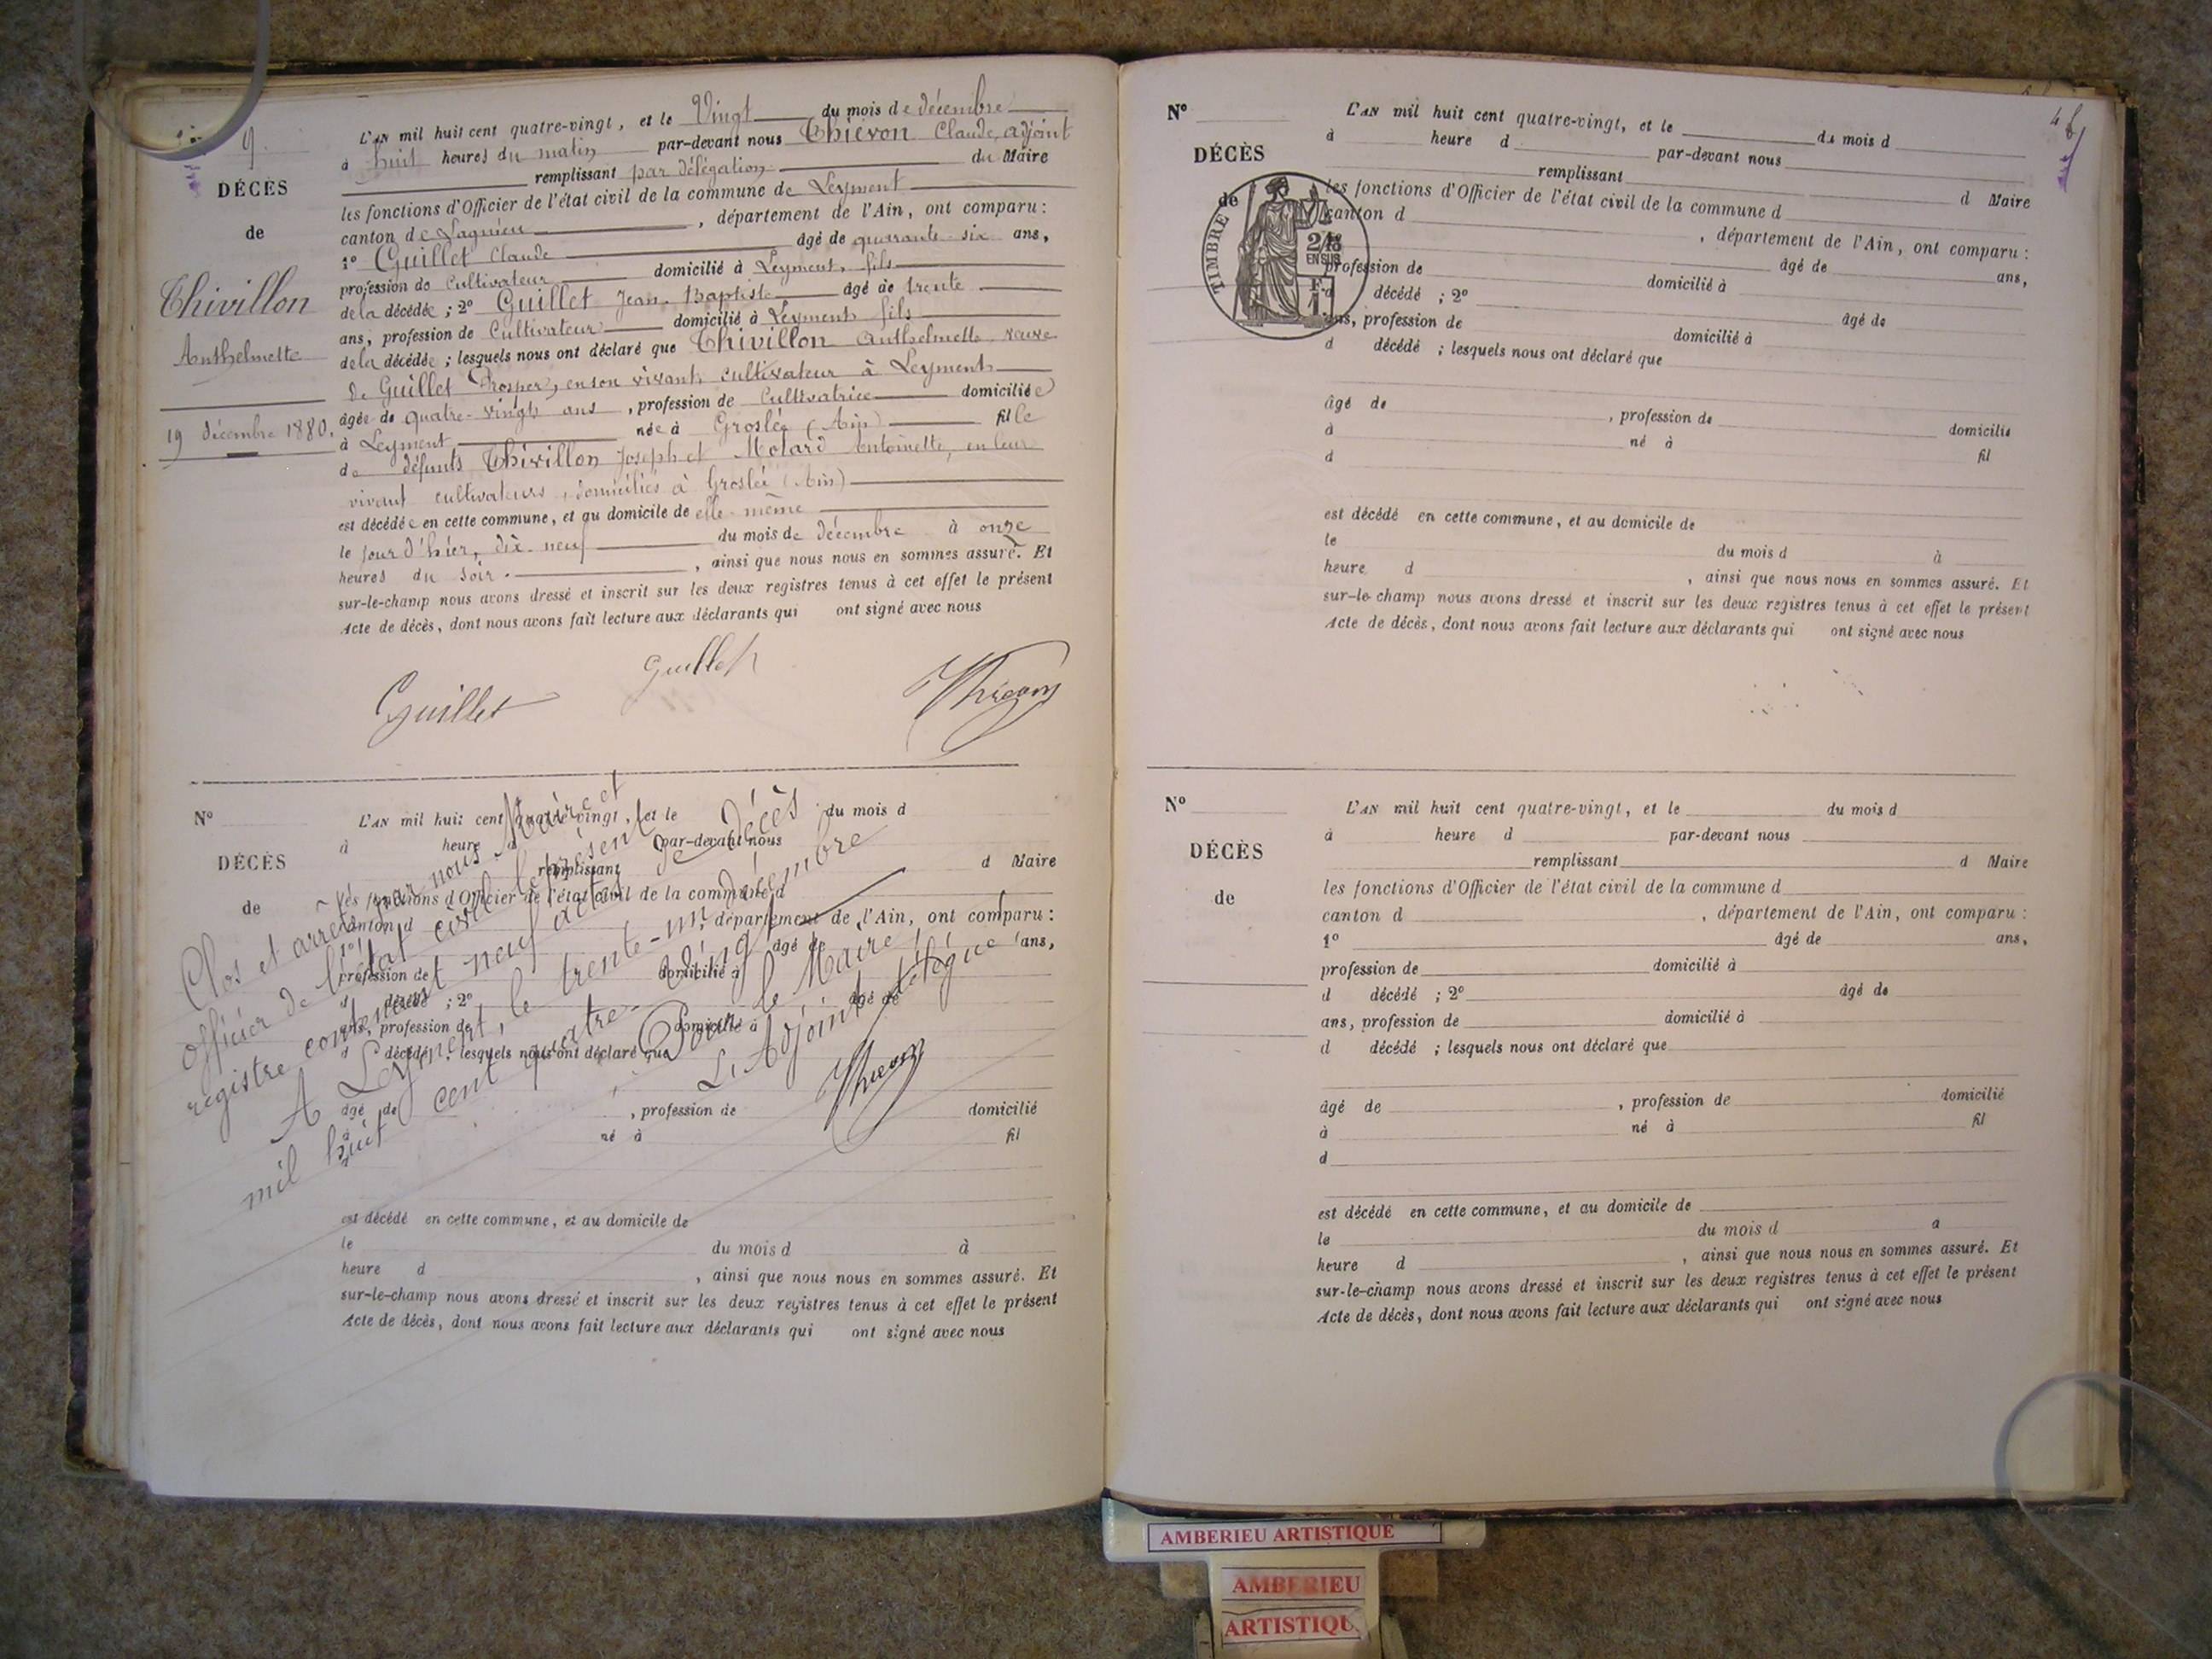 9
DÉCÈS
de
Thivillon
Anthelmette
19 décembre 1880.
L'AN mil huit cent quatre-vingt, et le Vingt du mois de décembre
à huit heures du matin par-devant nous Thievon Claude, adjoint
remplissant par délégation du Maire
les fonctions d'Officier de l'état civil de la commune de Leyment
canton de Lagnieu, département de l'Ain, ont comparu :
1° Guillet Claude âgé de quarante-six ans,
profession de Cultivateur domicilié à Leyment, fils
de la décédée ; 2° Guillet Jean-Baptiste âgé de trente
ans, profession de Cultivateur domicilié à Leyment fils
de la décédée ; lesquels nous ont déclaré que Thivillon Anthelmette veuve
de Guillet Prosper, en son vivant cultivateur à Leyment
âgée de quatre-vingt ans, profession de Cultivatrice domiciliée
à Leyment née à Groslée (Ain) fille
de défunts Thivillon Joseph et Motard Antoinette, en leur
vivant cultivateurs, domiciliés à Groslée (Ain)
est décédée en cette commune, et au domicile de elle-même
le jour d'hier, dix-neuf du mois de décembre à onze
heures du soir, ainsi que nous nous en sommes assuré. Et
sur-le-champ nous avons dressé et inscrit sur les deux registres tenus à cet effet le présent
Acte de décès, dont nous avons fait lecture aux déclarants qui ont signé avec nous
Guillet
Guillet
Thievon
N°
DÉCÈS
de
L'AN mil huit cent quatre-vingt, et le du mois d
à heure d par-devant nous
remplissant d Maire
les fonctions d'Officier de l'état civil de la commune d
canton d , département de l'Ain, ont comparu :
1° âgé de ans,
profession de domicilié à
d décédé ; 2° âgé de
ans, profession de domicilié à
d décédé ; lesquels nous ont déclaré que
âgé de , profession de domicilié
à né à fil
d
est décédé en cette commune, et au domicile de
le du mois d à
heure d , ainsi que nous nous en sommes assuré. Et
sur-le-champ nous avons dressé et inscrit sur les deux registres tenus à cet effet le présent
Acte de décès, dont nous avons fait lecture aux déclarants qui ont signé avec nous
Clos et arrêté par nous Maire et
officier de l'état civil le présent
registre contenant neuf actes de décès
A Leyment, le trente-un décembre
mil huit cent quatre-vingt
Pour le Maire,
L'Adjoint délégué
Thievon
N°
DÉCÈS
de
TIMBRE
EN SUS
L'AN mil huit cent quatre-vingt, et le du mois d
à heure d par-devant nous
remplissant d Maire
les fonctions d'Officier de l'état civil de la commune d
canton d , département de l'Ain, ont comparu :
âgé de ans,
profession de domicilié à
d décédé ; 2° âgé de
ans, profession de domicilié à
d décédé ; lesquels nous ont déclaré que
âgé de , profession de domicilié
à né à fil
d
est décédé en cette commune, et au domicile de
le du mois d à
heure d , ainsi que nous nous en sommes assuré. Et
sur-le-champ nous avons dressé et inscrit sur les deux registres tenus à cet effet le présent
Acte de décès, dont nous avons fait lecture aux déclarants qui ont signé avec nous
N°
DÉCÈS
de
L'AN mil huit cent quatre-vingt, et le du mois d
à heure d par-devant nous
remplissant d Maire
les fonctions d'Officier de l'état civil de la commune d
canton d , département de l'Ain, ont comparu :
1° âgé de ans,
profession de domicilié à
d décédé ; 2° âgé de
ans, profession de domicilié à
d décédé ; lesquels nous ont déclaré que
âgé de , profession de domicilié
à né à fil
d
est décédé en cette commune, et au domicile de
le du mois d à
heure d , ainsi que nous nous en sommes assuré. Et
sur-le-champ nous avons dressé et inscrit sur les deux registres tenus à cet effet le présent
Acte de décès, dont nous avons fait lecture aux déclarants qui ont signé avec nous
AMBERIEU ARTISTIQUE
AMBERIEU
ARTISTIQU